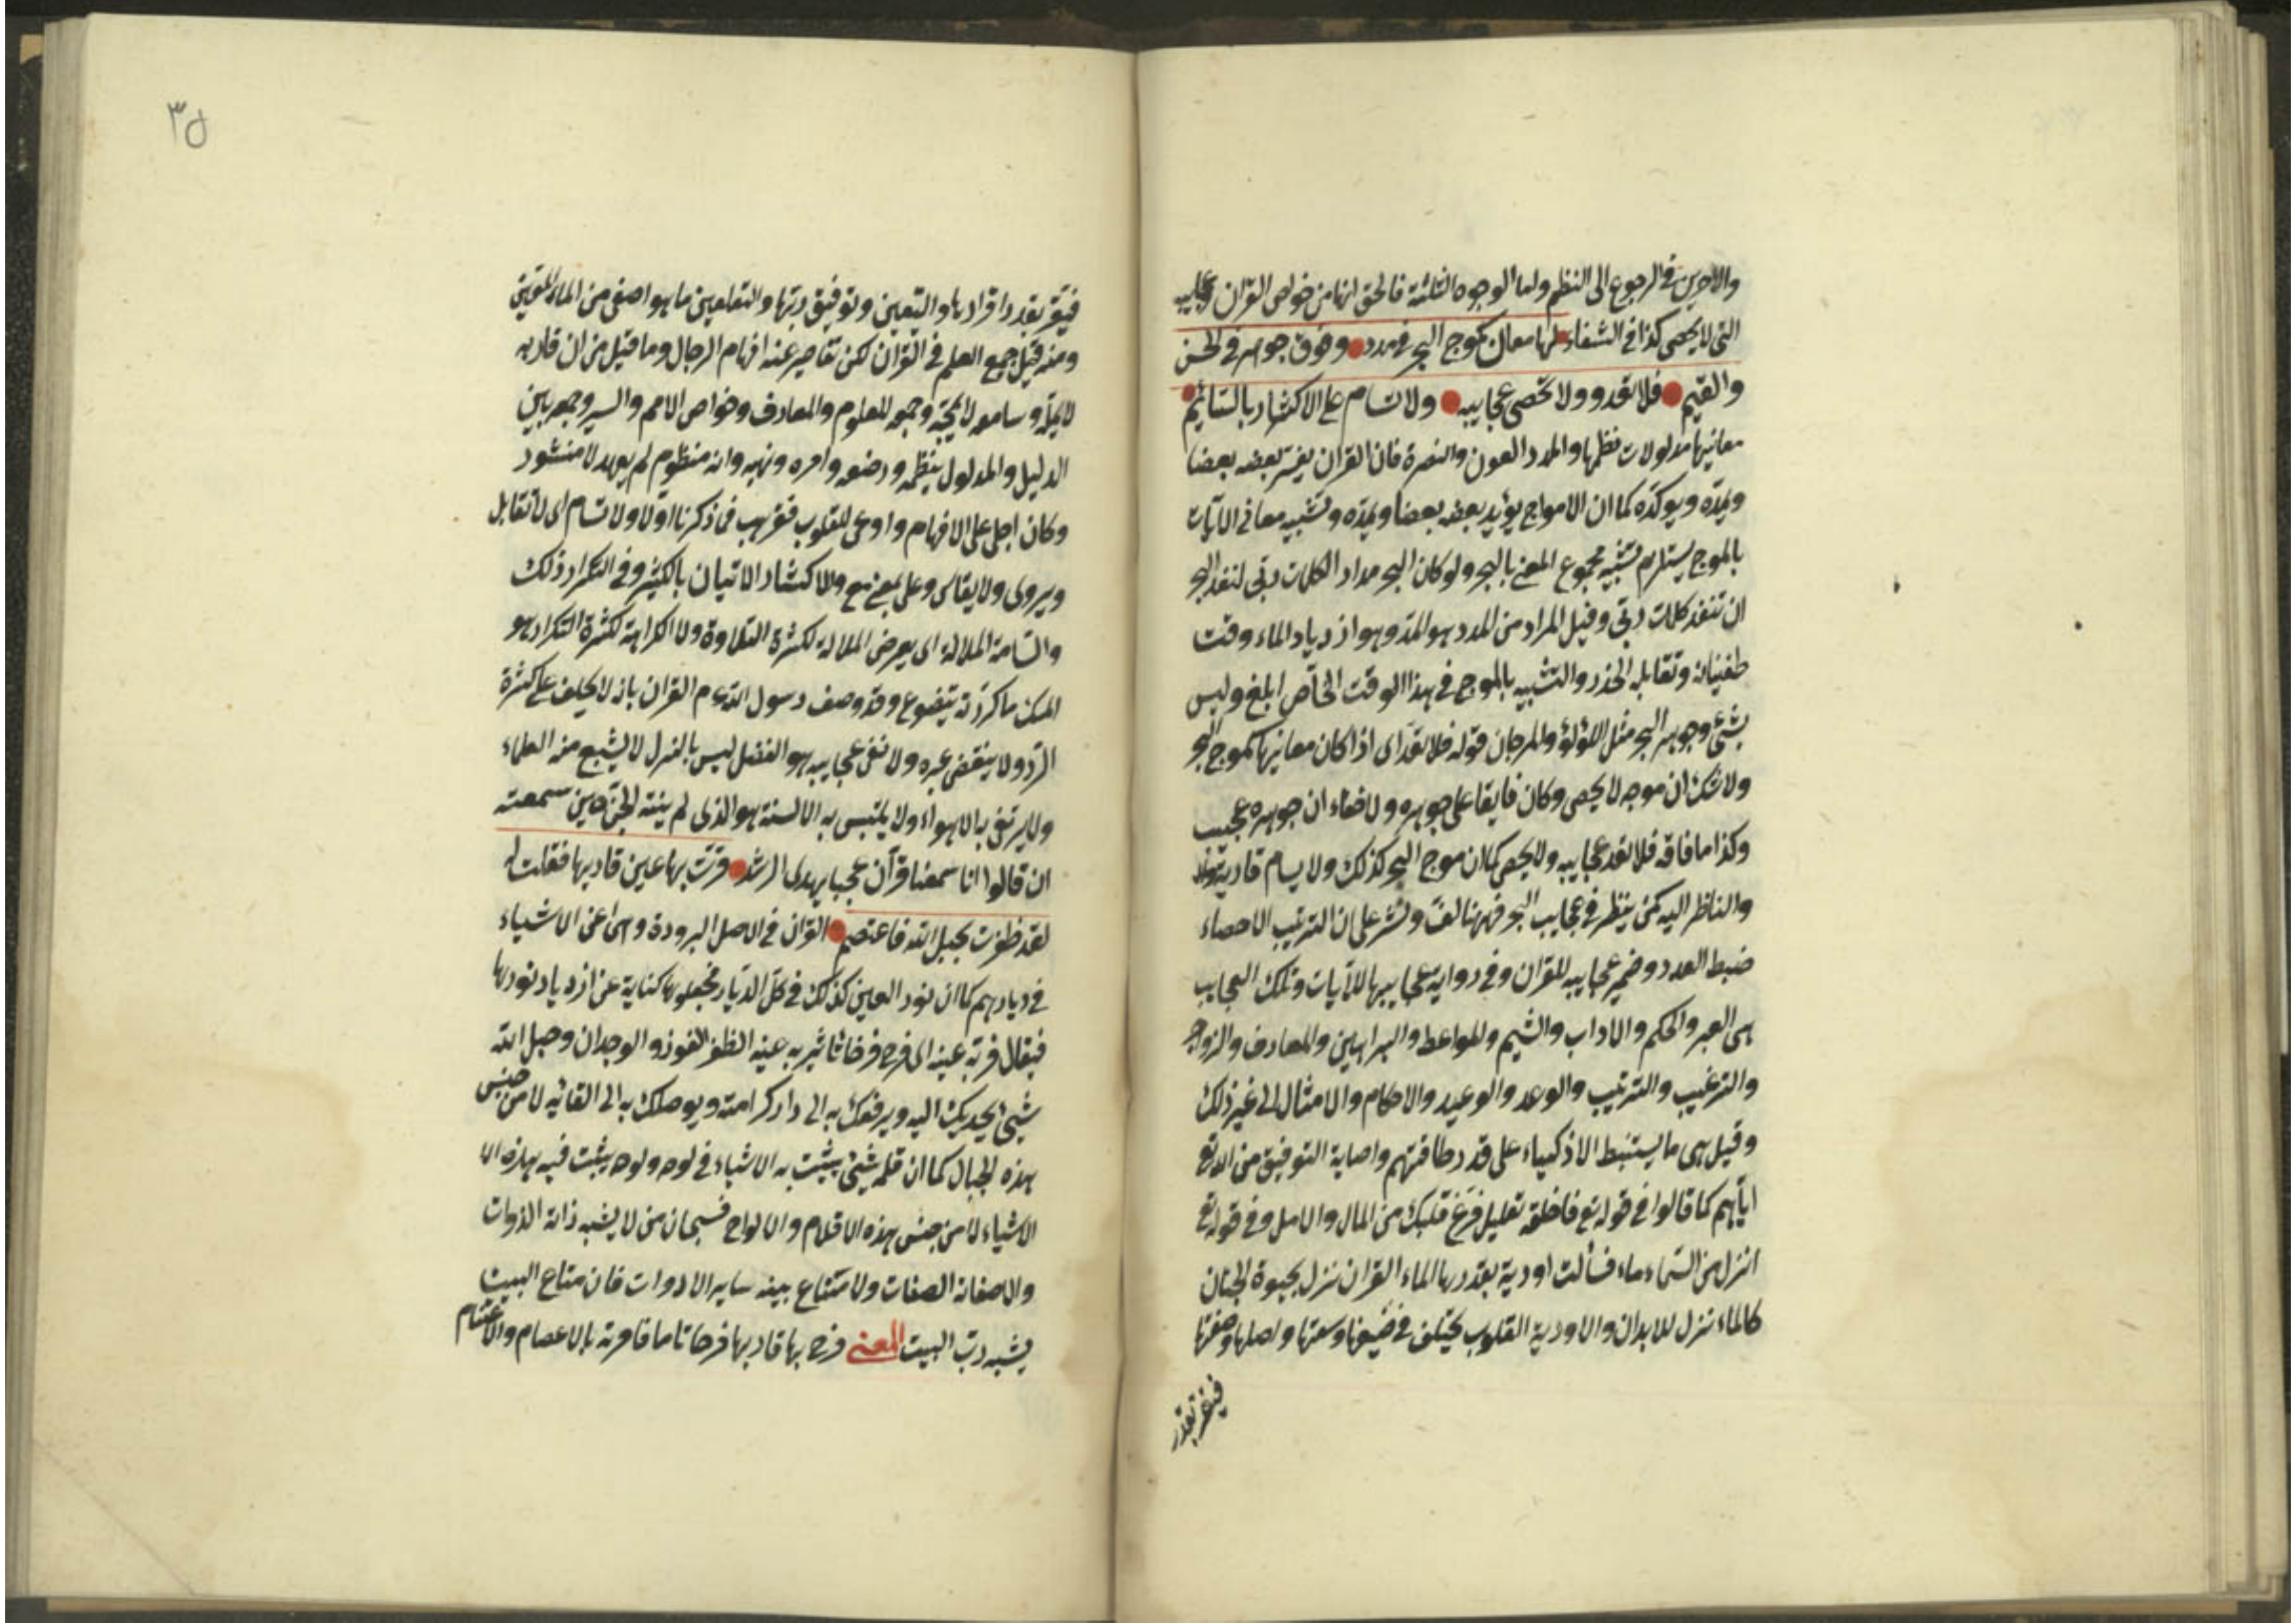 والاخرين في الرجوع الى النظم ولها الوجوه الثلثة فالحق انها من خواص القران وعجايبه
التى لا يحصى كذا في الشفاء لها معان كموج البحر في مدد وفوق جوهره في الحسن
والقيم فلا تعد ولا تحصى عجايبه ولا تسام على الاكثار بالسئم
معانيها مدلولات نظمها والمدد العون والنصرة فان القران يفسر بعضه بعضا
ويمده ويوكده كما ان الامواج يؤيد بعضه بعضا ويمده وتشبيه معانى الآيات
بالموج يستلزم تشبيه مجموع المعنى بالبحر ولو كان البحر مداد الكلمات ربى لنفد البحر
ان تنفد كلمات ربى وقيل المراد من المدد هو المد وهو ازدياد الماء وقت
طغيانه وتقابله الجزر والتشبيه بالموج في هذا الوقت الخاص ابلغ وليس
بشئ وجوهر البحر مثل اللؤلؤ والمرجان قوله فلا تعد اى اذا كان معانيها كموج البحر
ولا شك ان موجه لا يحصى وكان فايقا على جوهره ولا خفاء ان جوهره عجيب
وكذا ما فاقه فلا تعد عجايبه ولا يحصى كما ان موج البحر كذلك ولا يسام قاريه
والناظر اليه كمن ينظر في عجايب البحر فههنا لف ونشر على ان الترتيب الاحصاء
ضبط العدد وضمير عجايبه للقران وفي رواية عجايبها للآيات وتلك العجايب
هى العبر والحكم والاداب والشيم والمواعظ والبراهين والمعارف والزواجر
والترغيب والترتيب والوعد والوعيد والاحكام والامثال الى غير ذلك
وقيل هى ما يستنبط الاذكياء على قدر طاقتهم واصابة التوفيق من الله تع
اياهم كما قالوا في قوله تع فاخلع نعليك فرغ قلبك من المال والامل وفي قوله تع
انزل من السماء ماء فسالت اودية بقدرها الماء القران نزل بحيوة الجنان
كالماء نزل للابدان والاودية القلوب يختلف في ضيقها وسعتها واصلها وصغرها
فيقر بقدر
فيقر بقدر اقرارها والتعين وتوفيق ربها والتقلعين ما هو اصفى من الماء المعين
ومنه قيل جميع العلم في القران لكن تقاصر عنه افهام الرجال وما قيل من ان قاريه
لا يمله وسامعه لا يمجه وجمعه للعلوم والمعارف وخواص الامم والسير وجمعه بين
الدليل والمدلول بنظمه ورصفه وامره ونهيه وانه منظوم لم يعهد لا منثور
وكان اجلى على الافهام واوعى للقلوب فقريب فى ذكرنا اولا ولا تسام اى لا تقابل
ويروى ولا يقاس وعلى بمعنى مع والاكثار الاتيان بالكثير وفى التكرار ذلك
والسامة الملالة اى يعرض الملالة لكثرة التلاوة ولا الكراهة لكثرة التكرار هو
المسك ما كررته يتضوع وقد وصف رسول الله ءم القران بانه لا يخلف على كثرة
الرد ولا ينقضى عبره ولا تفنى عجايبه هو الفصل ليس بالهزل لا يشبع منه العلماء
ولا يزيغ به الاهواء ولا يلتبس به الالسنة هو الذى لم ينته الجن حين سمعته
ان قالوا انا سمعنا قرآن عجبا يهدى الى الرشد قرت بها عين قاريها فقلت له
لقد ظفرت بحبل الله فاعتصم القران فى الاصل البرودة وهى اعز الاشياء
في ديارهم كما ان نور العين كذلك في كل الديار فجعلوها كناية عن ازدياد نورها
فيقال قر به عينه اى فرح فرحا تاثير به عينه الظفر الفوز والوجدان وحبل الله
شئ يجديك اليه ويرفعك به الى دار كرامته ويوصلك به الى القائه لا من جنس
هذه الجبال كما ان قلمه شئ يثبت به الاشياء في لوحه ولوحه يثبت فيه هذه الا
الاشياء لا من جنس هذه الاقلام والالواح فسبحان من لا يشبه ذاته الذوات
ولا صفاته الصفات ولا متاع بيته ساير الادوات فان متاع البيت
يشبه رب البيت المعنى فرح بها قاريها فرحا تاما مقاومة بالاعصام والاغتنام
٣٥